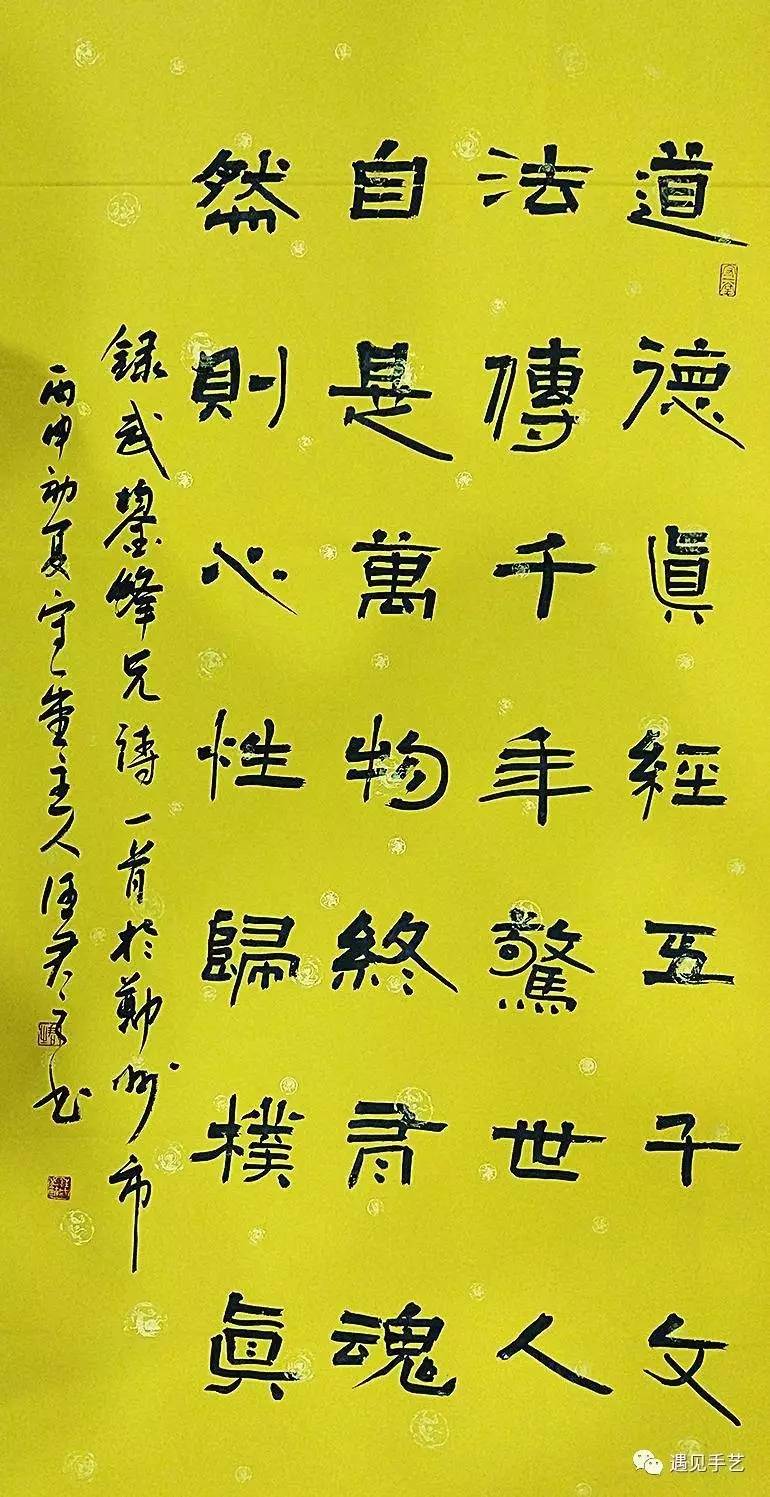 道德眞經五子文
法傳千年驚世人
自是萬物終魂
然則心性歸樸眞
錄武鋒兄詩一首於鄭州市
丙申初夏守一堂主人書
遇见手艺